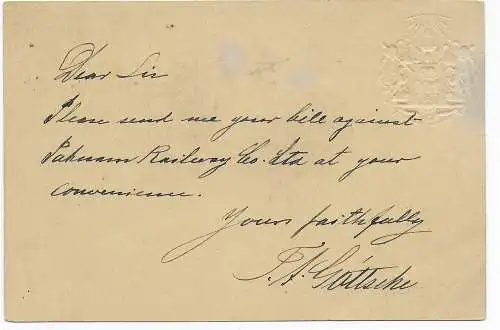 Dear Sir
Please send me your bill against
Paknam Railway Co. Ltd at your
convenience.
Yours faithfully
T. A. Gottsche